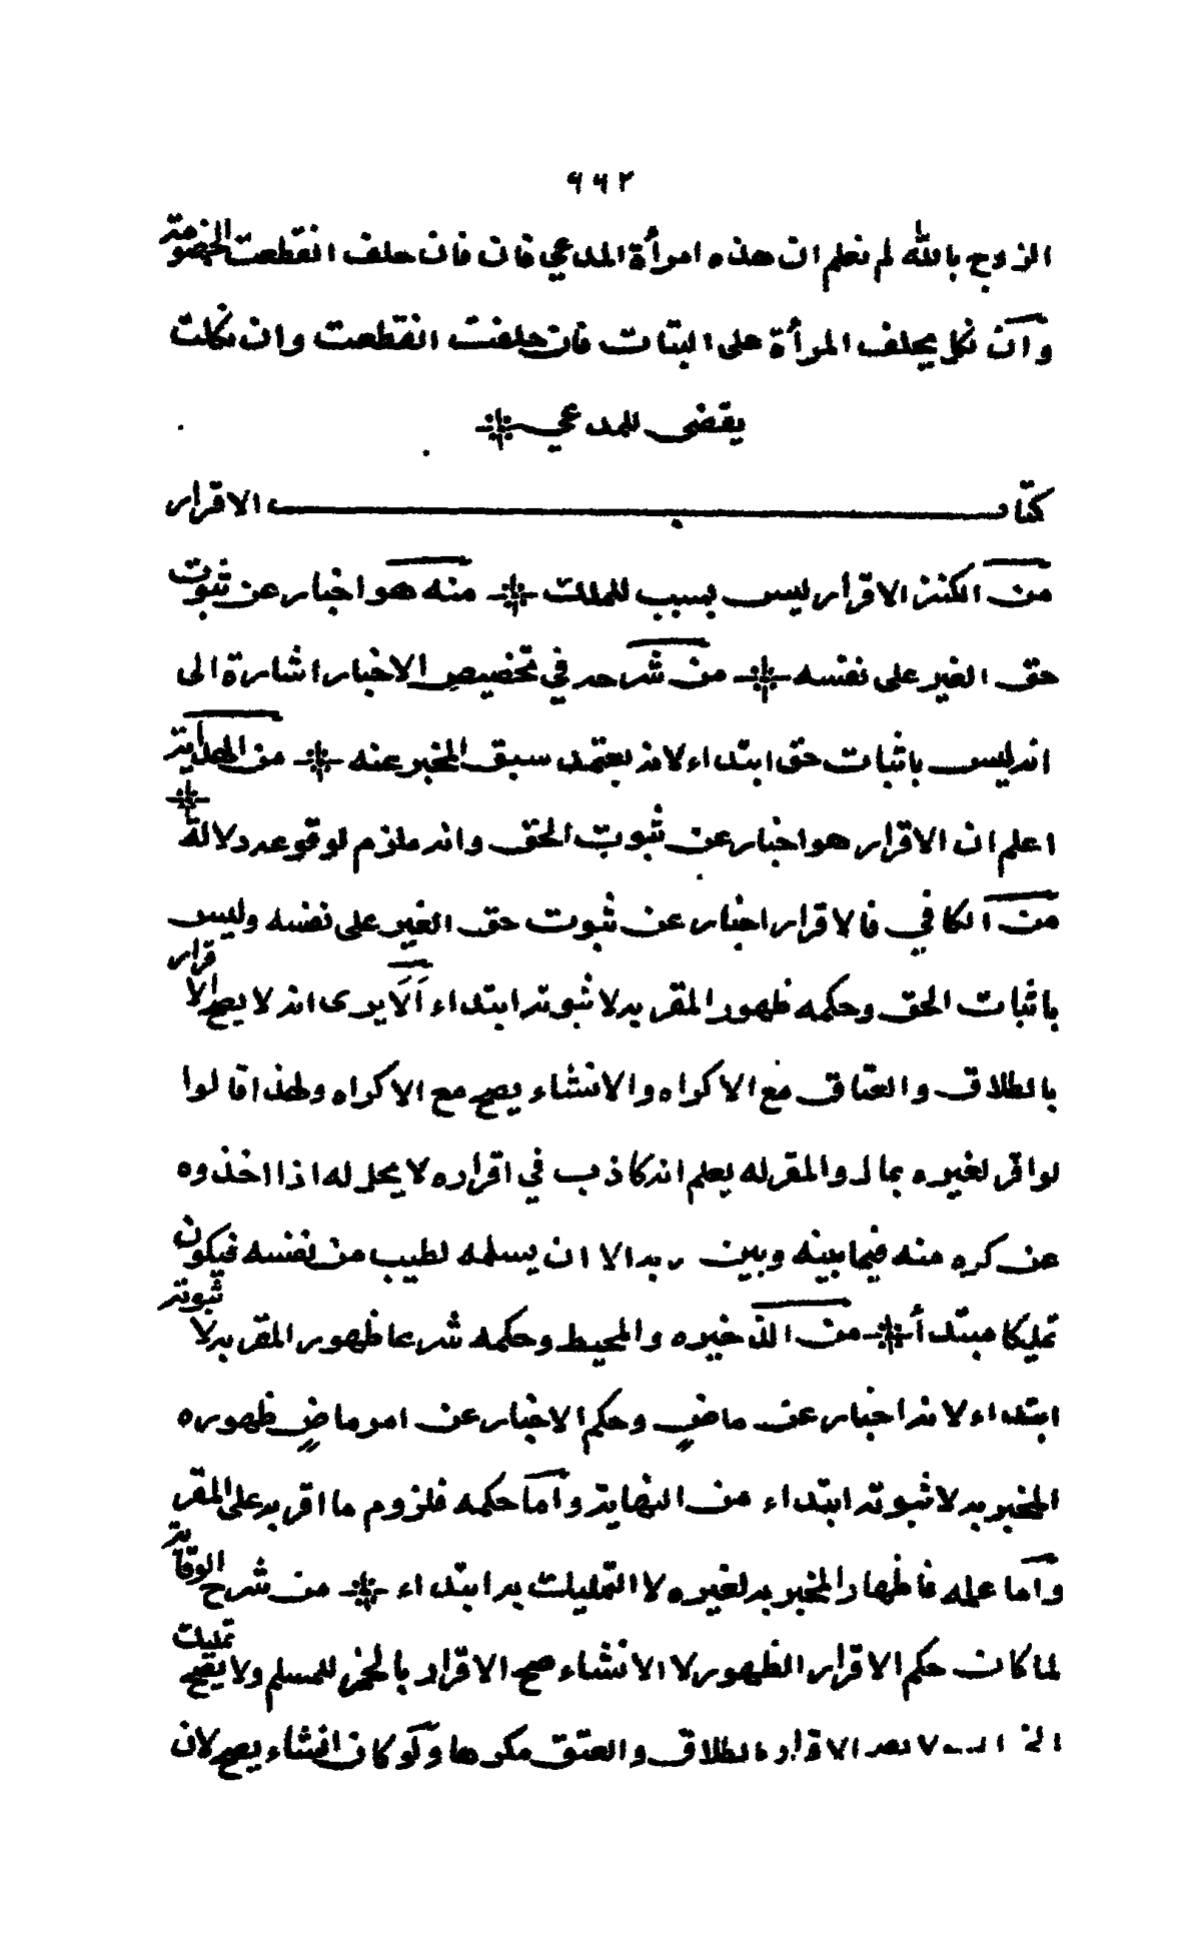 ٦٦٢
الزوج بالله لم نعلم ان هذه امرأة المدعي فان فان حلف انقطعت الخصومة
وان نكل يحلف المرأة على البتات فان حلفت انقطعت وان نكلت
يقضى للمدعي
كتاب الاقرار
من الكنز الاقرار ليس بسبب للملك منه هو اخبار عن ثبوت
حق الغير على نفسه من شرحه في تخصيص الاخبار اشارة الى
انه ليس باثبات حق ابتداء لانه يعتمد سبق المخبر عنه من الهداية
اعلم ان الاقرار هو اخبار عن ثبوت الحق وانه ملزم لوقوعه دلالة
من الكافي فالاقرار اخبار عن ثبوت حق الغير على نفسه وليس
باثبات الحق وحكمه ظهور المقر به لا ثبوته ابتداء ألا يرى انه لا يصح الاقرار
بالطلاق والعتاق مع الاكراه والانشاء يصح مع الاكراه ولهذا قالوا
لو اقر لغيره بمال والمقر له يعلم انه كاذب في اقراره لا يحل له اذا اخذوه
عن كره منه فيما بينه وبين ربه الا ان يسلمه لطيب من نفسه فيكون
تمليكا مبتدأ من الذخيره والمحيط وحكمه شرعا ظهور المقر به لا ثبوته
ابتداء لانه اخبار عن ماض وحكم الاخبار عن امر ماض ظهوره
المخبر به لا ثبوته ابتداء من النهاية واما حكمه فلزوم ما اقر به على المقر
واما عمله فاظهار المخبر به لغيره لا التمليك به ابتداء من شرح الوقاية
لما كان حكم الاقرار الظهور لا الانشاء صح الاقرار بالخمر للمسلم ولا يصح تمليك
لا يصح الاقرار بالطلاق والعتق مكرها ولو كان انشاء يصح لان